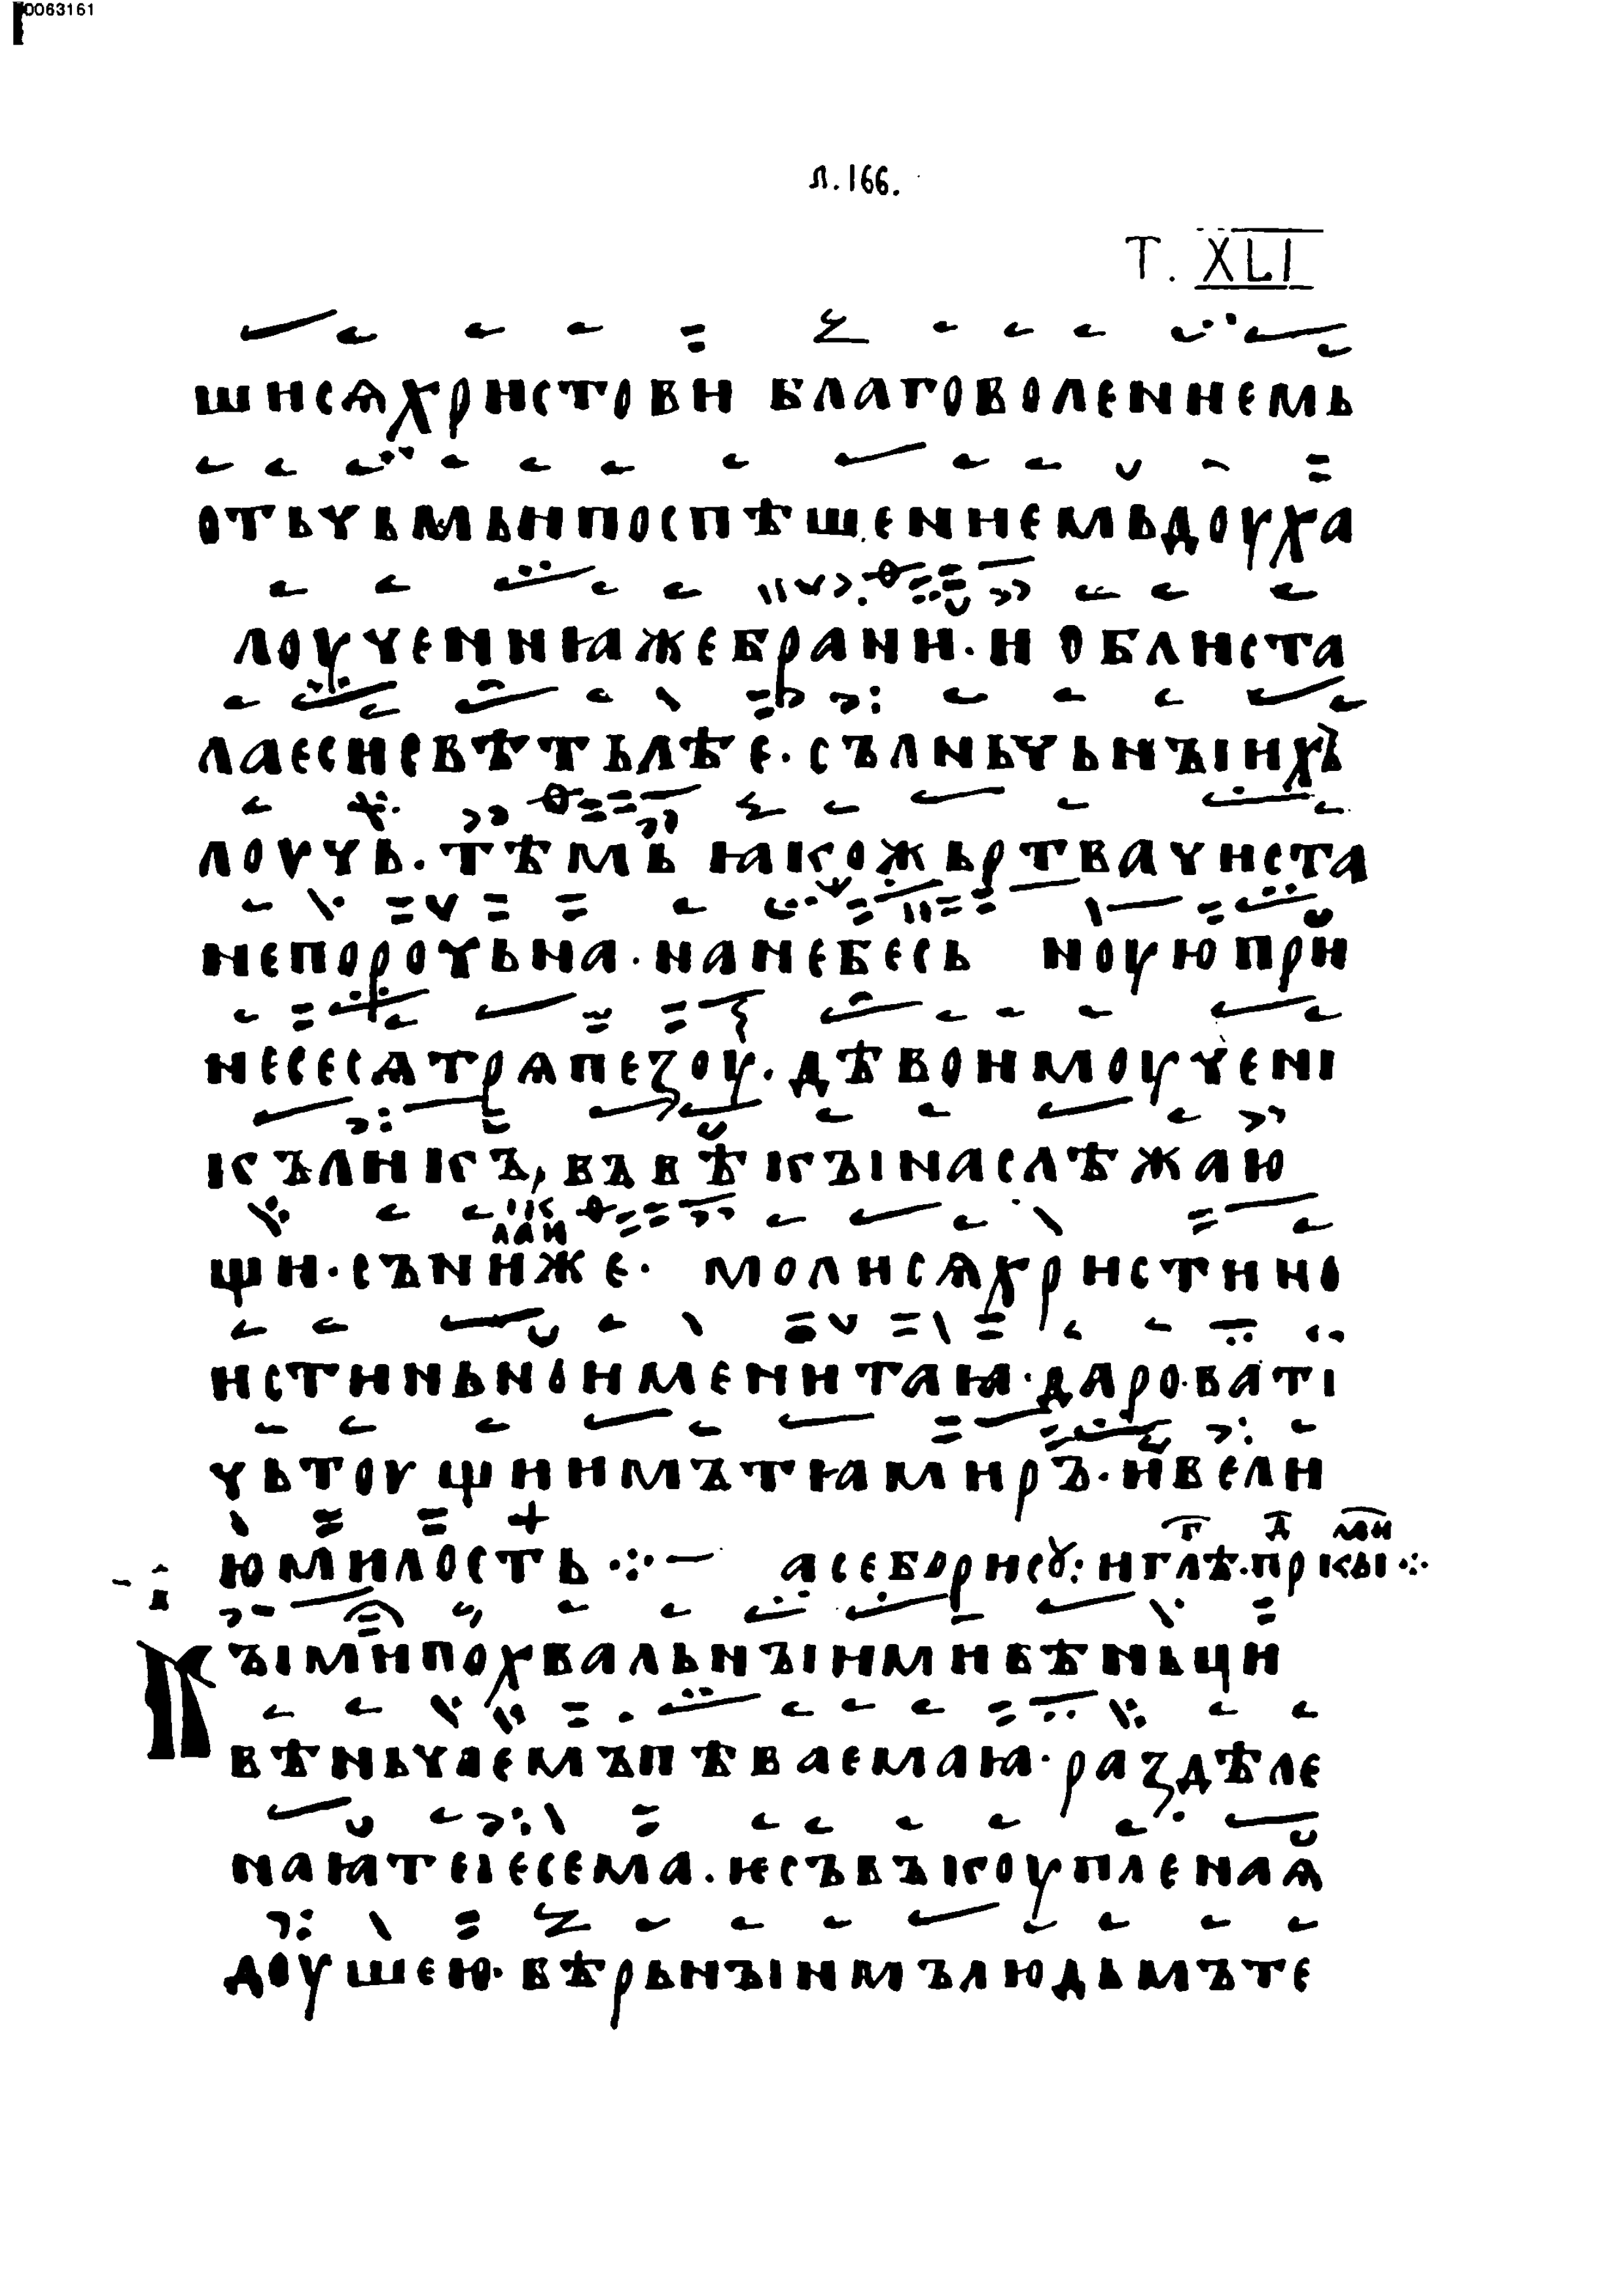 0063161
л. 166.
Т. XLI
шисѧхристови благоволениемь
отьчьмьипоспѣшениемьдоуха
лоучениꙗжебрани·и облиста
лаесисвѣтьлѣе·сълньчьнꙑихъ
лоучь·тѣмь ꙗкожьртвачиста
непорочьна·нанебесь ноуюпри
несесѧтрѧпезоу·дѣвоимоучені
къликъ, въвѣкꙑнаслѣжаю
щи·съниже· молисѧхристино
истиньноименитаꙗ·дароваті
чьтоущиимътꙗмиръ·ивели
юмилость ⁘— асеборисꙋ:иглѣ·пркꙑ⁘
Кꙑмипохвальнꙑимивѣньци
вѣньчаемъпѣваемаꙗ·раздѣле
наꙗтелесема·исъвъкоупленаꙗ
доушею·вѣрьнꙑимълюдьмъте